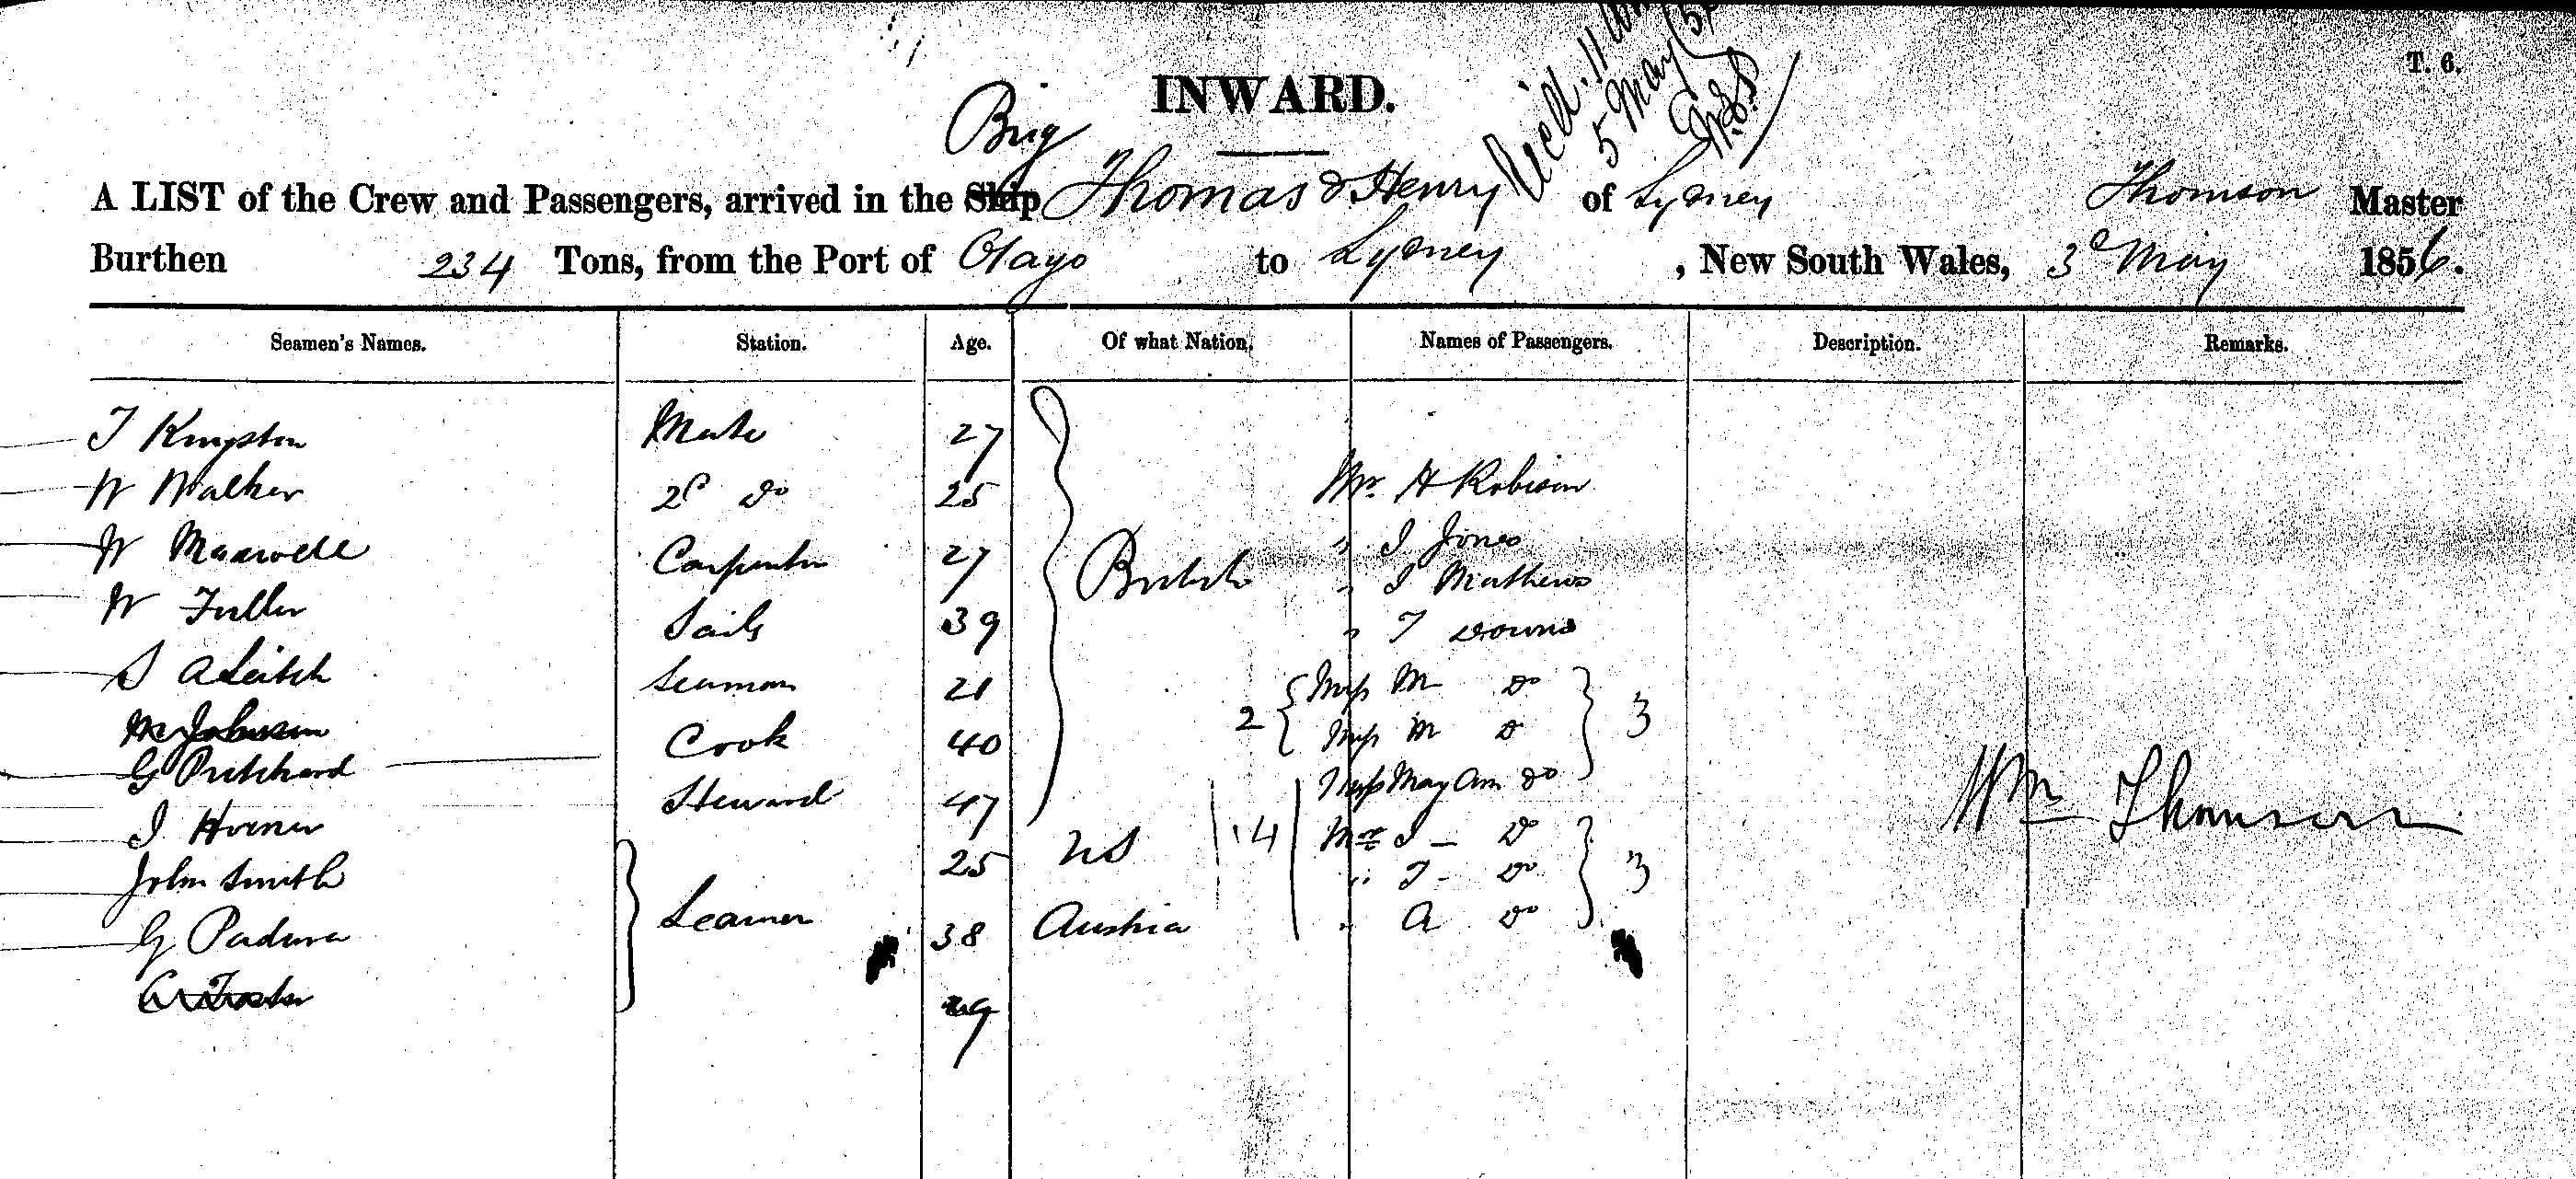 T. 6.
INWARD.
Recd. 11
5 May
Brig
A LIST of the Crew and Passengers, arrived in the Ship Thomas & Henry of Sydney Thomson Master
Burthen 234 Tons, from the Port of Otago to Sydney, New South Wales, 3d May 1856.
Seamen's Names. Station. Age. Of what Nation. Names of Passengers. Description. Remarks.
T Kingston Mate 27
W Walker 2d Do 25 Mr. H Robison
W Maxwell Carpenter 27 British " J Jones
" J Mathews
W Fuller Sails 39 " T Downs
S A Leitch Seaman 21 2 Miss M Do 3
Johnson Cook 40 Miss M D
G Pritchard Steward 47 Miss May Ann Do
J Horner 25 US 14 J - Do
John Smith " T - Do 3
G Padura Seamen 38 Austria " A Do
Foster 29
Wm Thomson